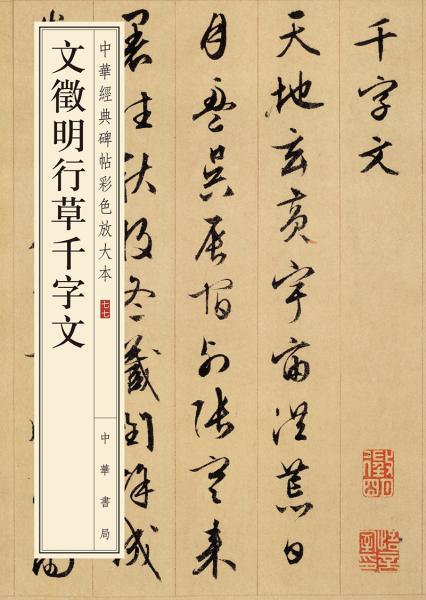 千字文
徵明
悟言室印
天地玄黃宇宙洪荒日
月盈昃辰宿列張寒来
暑往秋收冬藏閏餘成
中華經典碑帖彩色放大本
七七
中華書局
文徵明行草千字文